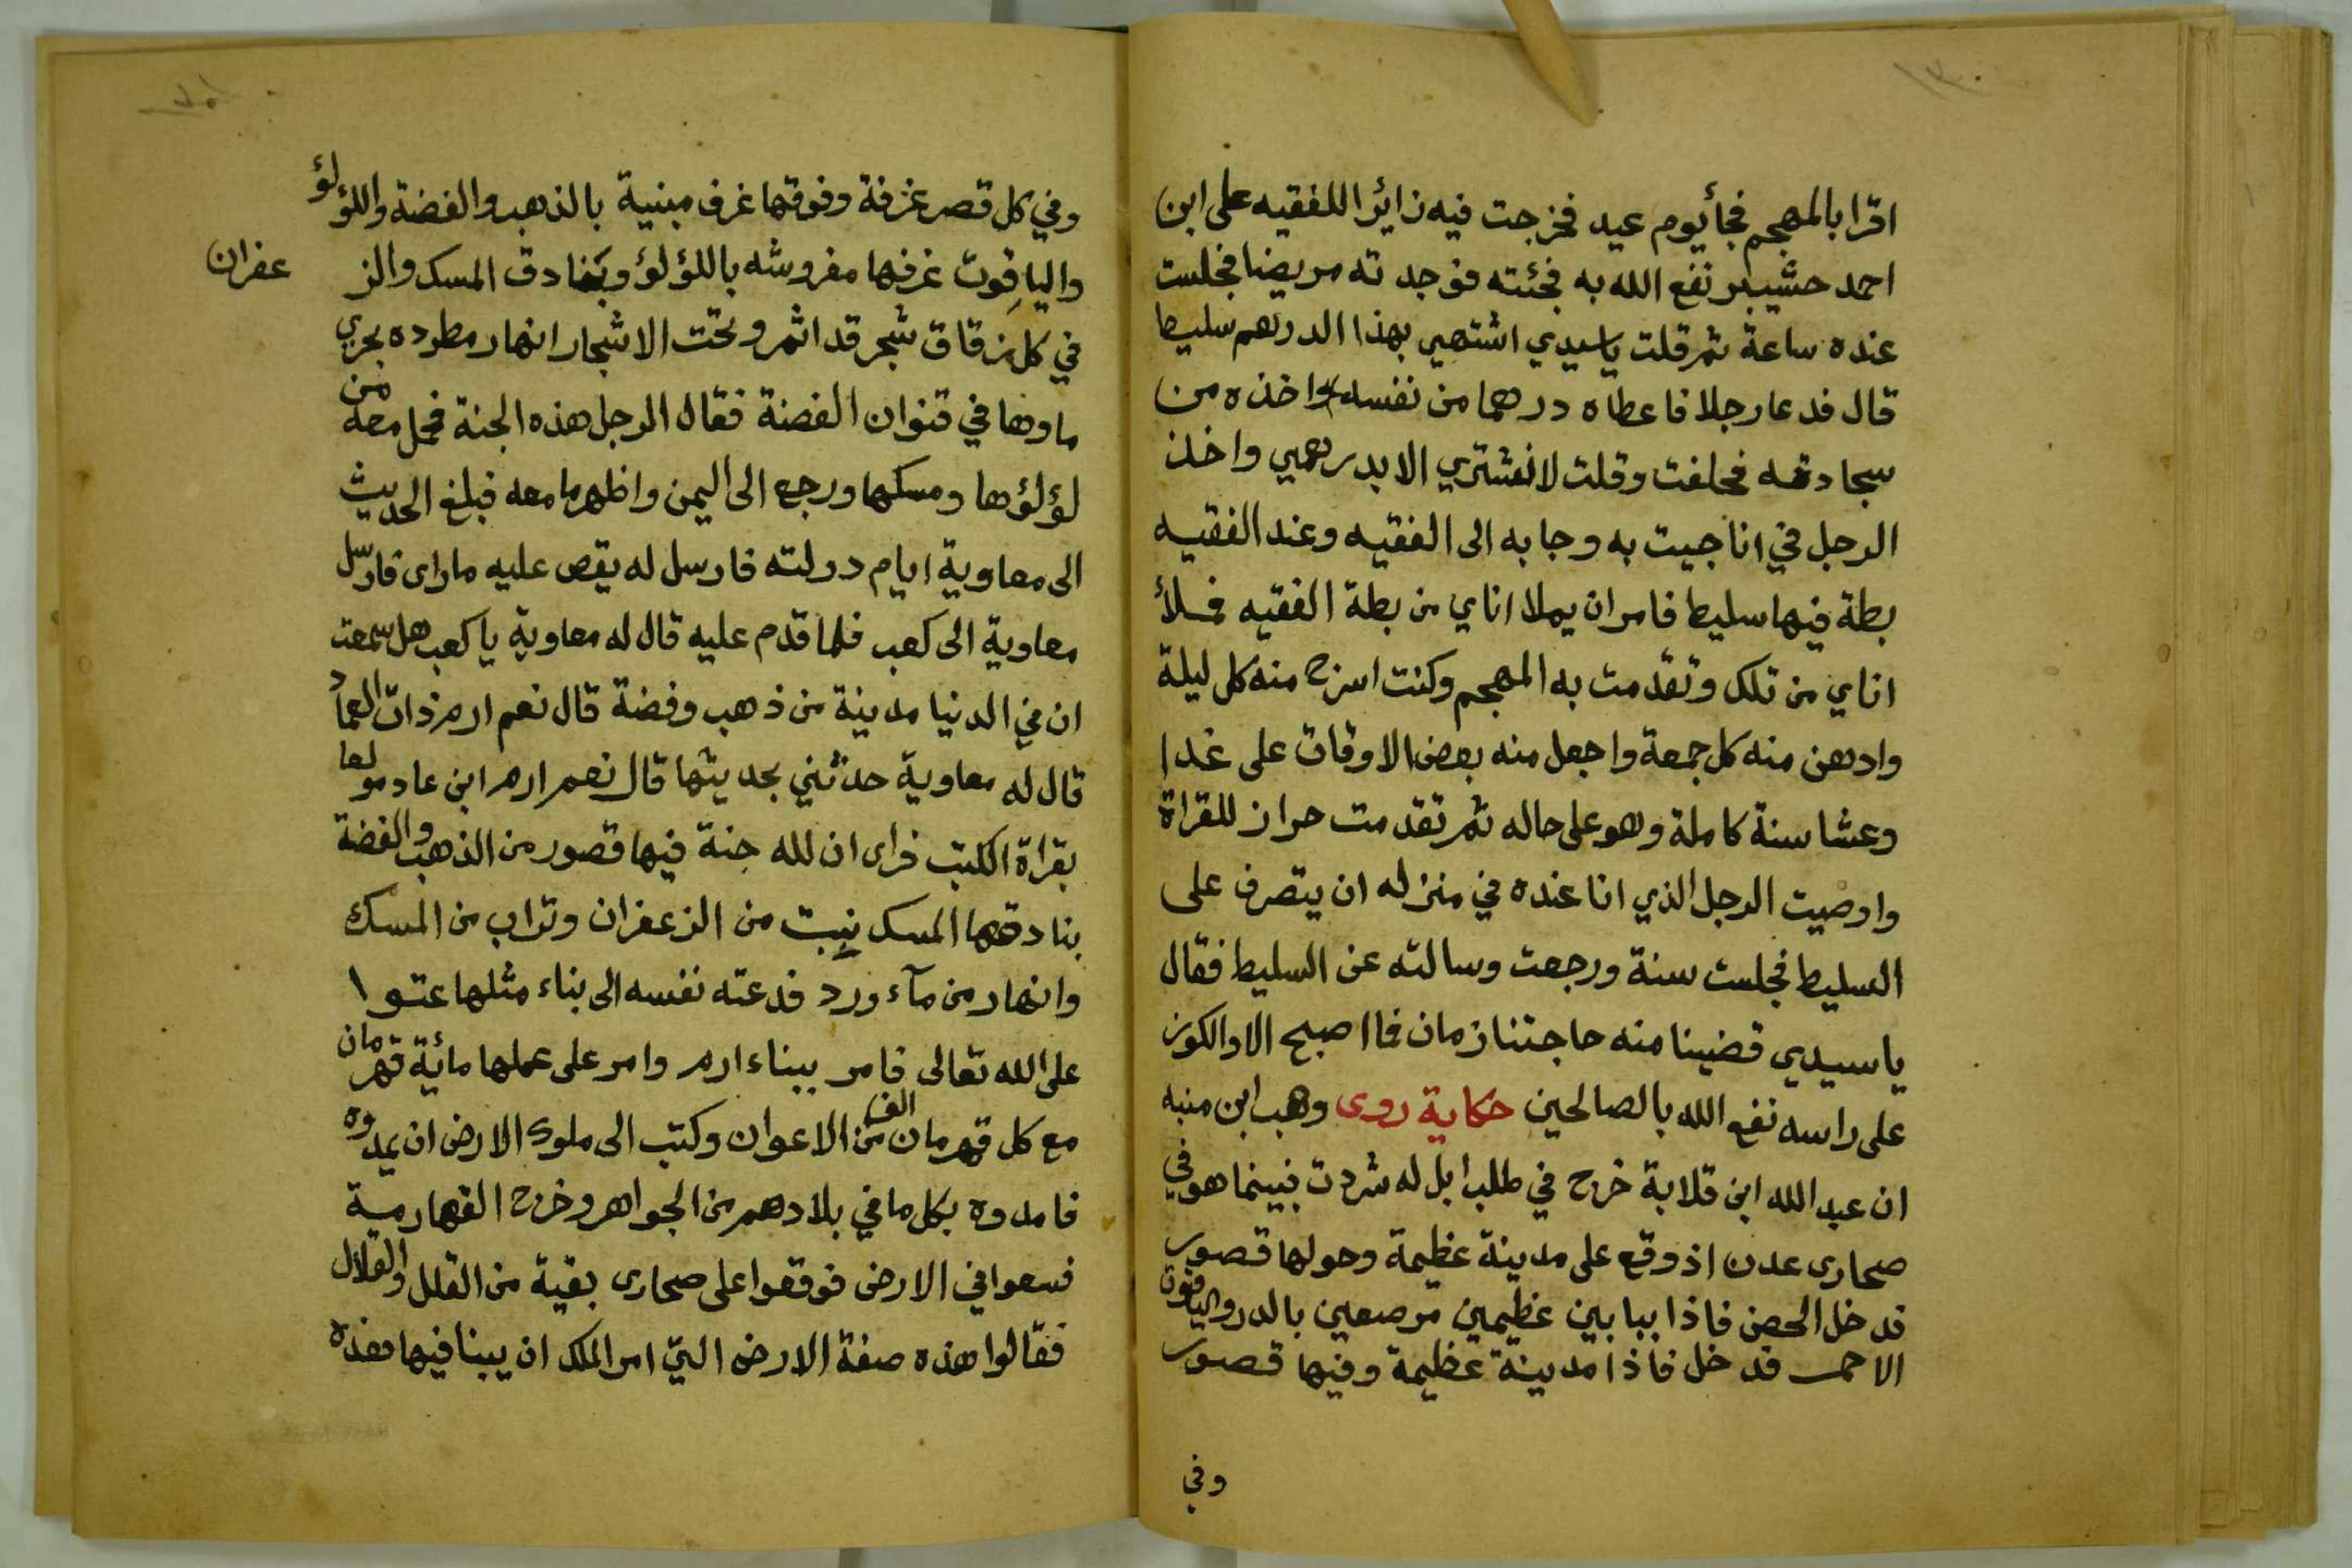 اقرا بالمهجم فجأ يوم عيد فخرجت فيه زائرا للفقيه على ابن
احمد حشيبر نفع الله به فجئته فوجد ته مريضا فجلست
عنده ساعة ثم قلت ياسيدي اشتهي بهذا الدرهم سليط
قال فدعا رجلا فاعطاه درهما من نفسه واخذه من
سجادته فحلفت وقلت لا نشتري الا بدرهمي واخذ
الرجل في انا جيت به وجا به الى الفقيه وعند الفقيه
بطة فيها سليط فامر ان يملا اناي من بطة الفقيه فملأ
اناي من تلك وتقدمت به المهجم وكنت اسرج منه كل ليلة
وادهن منه كل جمعة واجعل منه بعض الاوقات على غدا
وعشا سنة كاملة وهو على حاله ثم تقدمت حراز للقراة
واوصيت الرجل الذي انا عنده في منزله ان يتصرف على
السليط فجلست سنة ورجعت وسالته عن السليط فقال
ياسيدي قضينا منه حاجتنا زمان فما اصبح الا والكوز
على راسه نفع الله بالصالحين حكاية روى وهب ابن منبه
ان عبد الله ابن قلابة خرج في طلب ابل له شردت فبينما هو في
صحارى عدن اذ وقع على مدينة عظيمة وحولها قصور
فدخل الحصن فاذا ببابين عظيمين مرصعين بالدر والياقوت
الاحمر فدخل فاذا مدينة عظيمة وفيها قصور
وفي
وفي كل قصر غرفة وفوقها غرف مبنية بالذهب والفضة واللؤلؤ
والياقوت غرفها مفروشه باللؤلؤ وبنادق المسك والز عفران
في كل زقاق شجر قد اثمر وتحت الاشجار انهار مطرده يجري
ماوها في قنوان الفضة فقال الرجل هذه الجنة فحمل معه من
لؤلؤها ومسكها ورجع الى اليمن واظهر ما معه فبلغ الحديث
الى معاوية ايام دولته فارسل له يقص عليه ماراى فارسل
معاوية الى كعب فلما قدم عليه قال له معاوية ياكعب هل سمعت
ان في الدنيا مدينة من ذهب وفضة قال نعم ارم ذات العماد
قال له معاوية حدثني بحديثها قال نعم ارم ابن عاد مولعا
بقراة الكتب فراى ان لله جنة فيها قصور من الذهب والفضة
بنادقها المسك نبت من الزعفران وتراب من المسك
وانهار من مآء ورد فدعته نفسه الى بناء مثلها عتوا
على الله تعالى فامر ببناء ارم وامر على عملها مائة قهرمان
مع كل قهرمان الف من الاعوان وكتب الى ملوك الارض ان يمدوه
فامدوه بكل ما في بلادهم من الجواهر وخرج القهارمية
فسعوا في الارض فوقفوا على صحارى بقية من القلل والقلال
فقالوا هذه صفة الارض التي امر الملك ان يبنا فيها